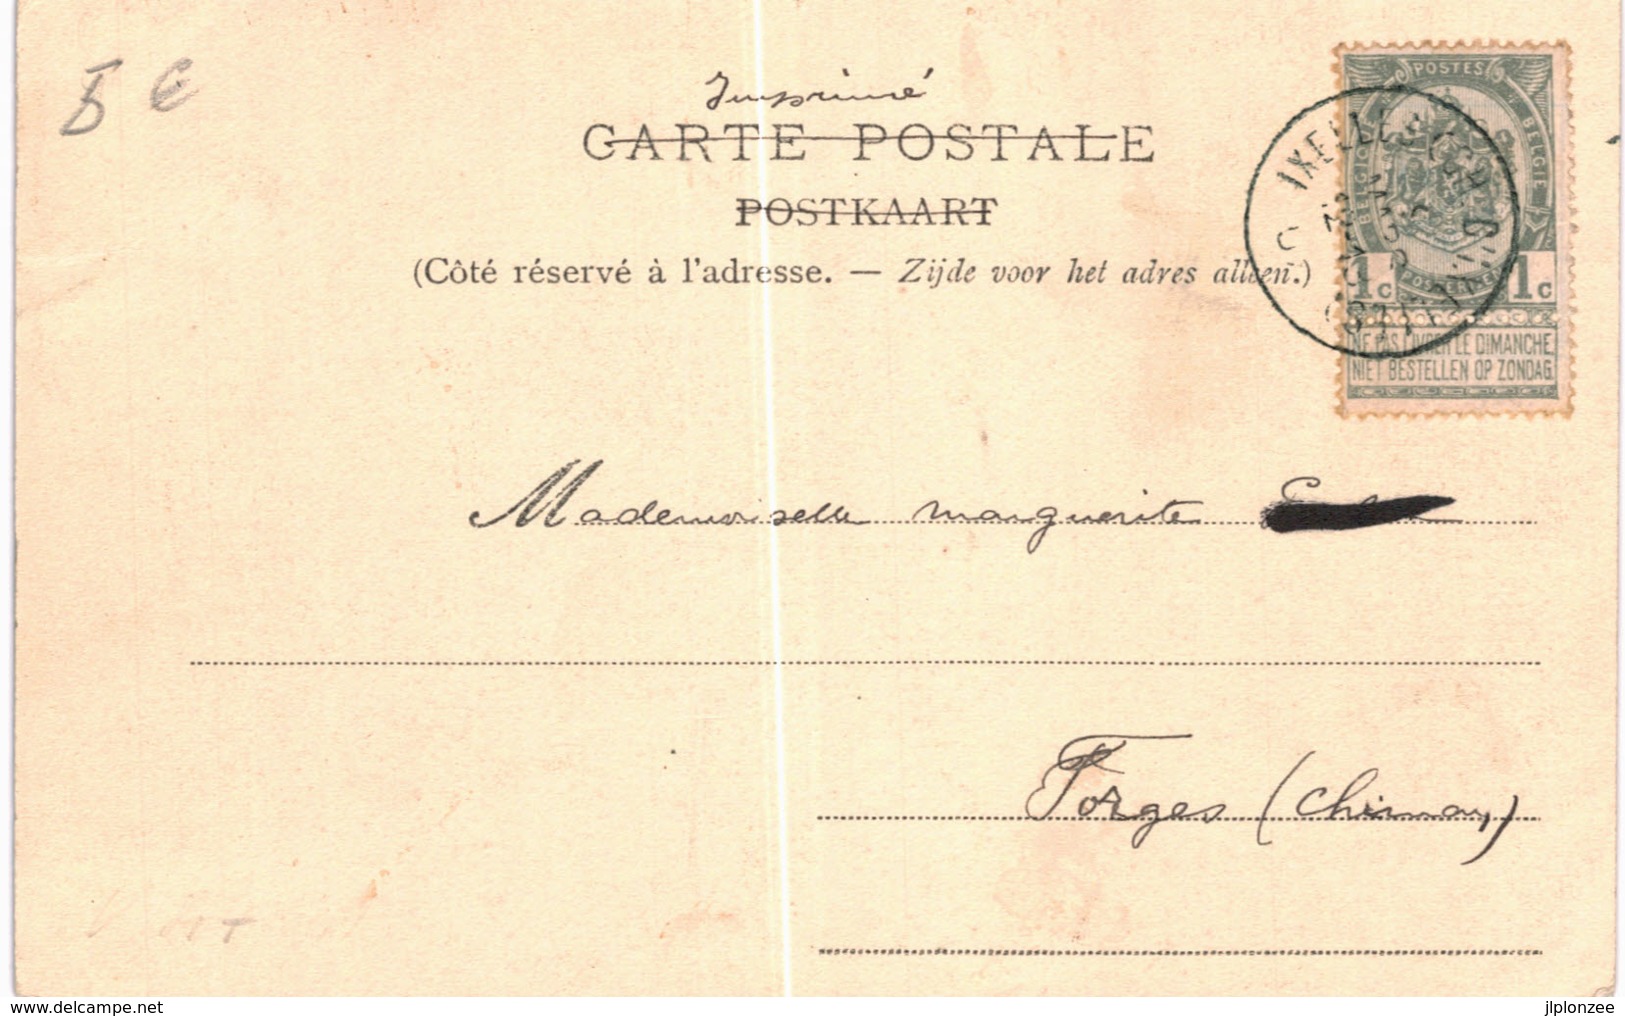 5 €
Imprimé
CARTE POSTALE
POSTKAART
(Côté réservé à l'adresse. — Zijde voor het adres alleen.)
POSTES
BELGIQUE BELGIË
IXELLES
1c 1c
NE PAS LIVRER LE DIMANCHE
NIET BESTELLEN OP ZONDAG
Mademoiselle Marguerite
Forges (Chimay)
www.delcampe.net
jlplonzee